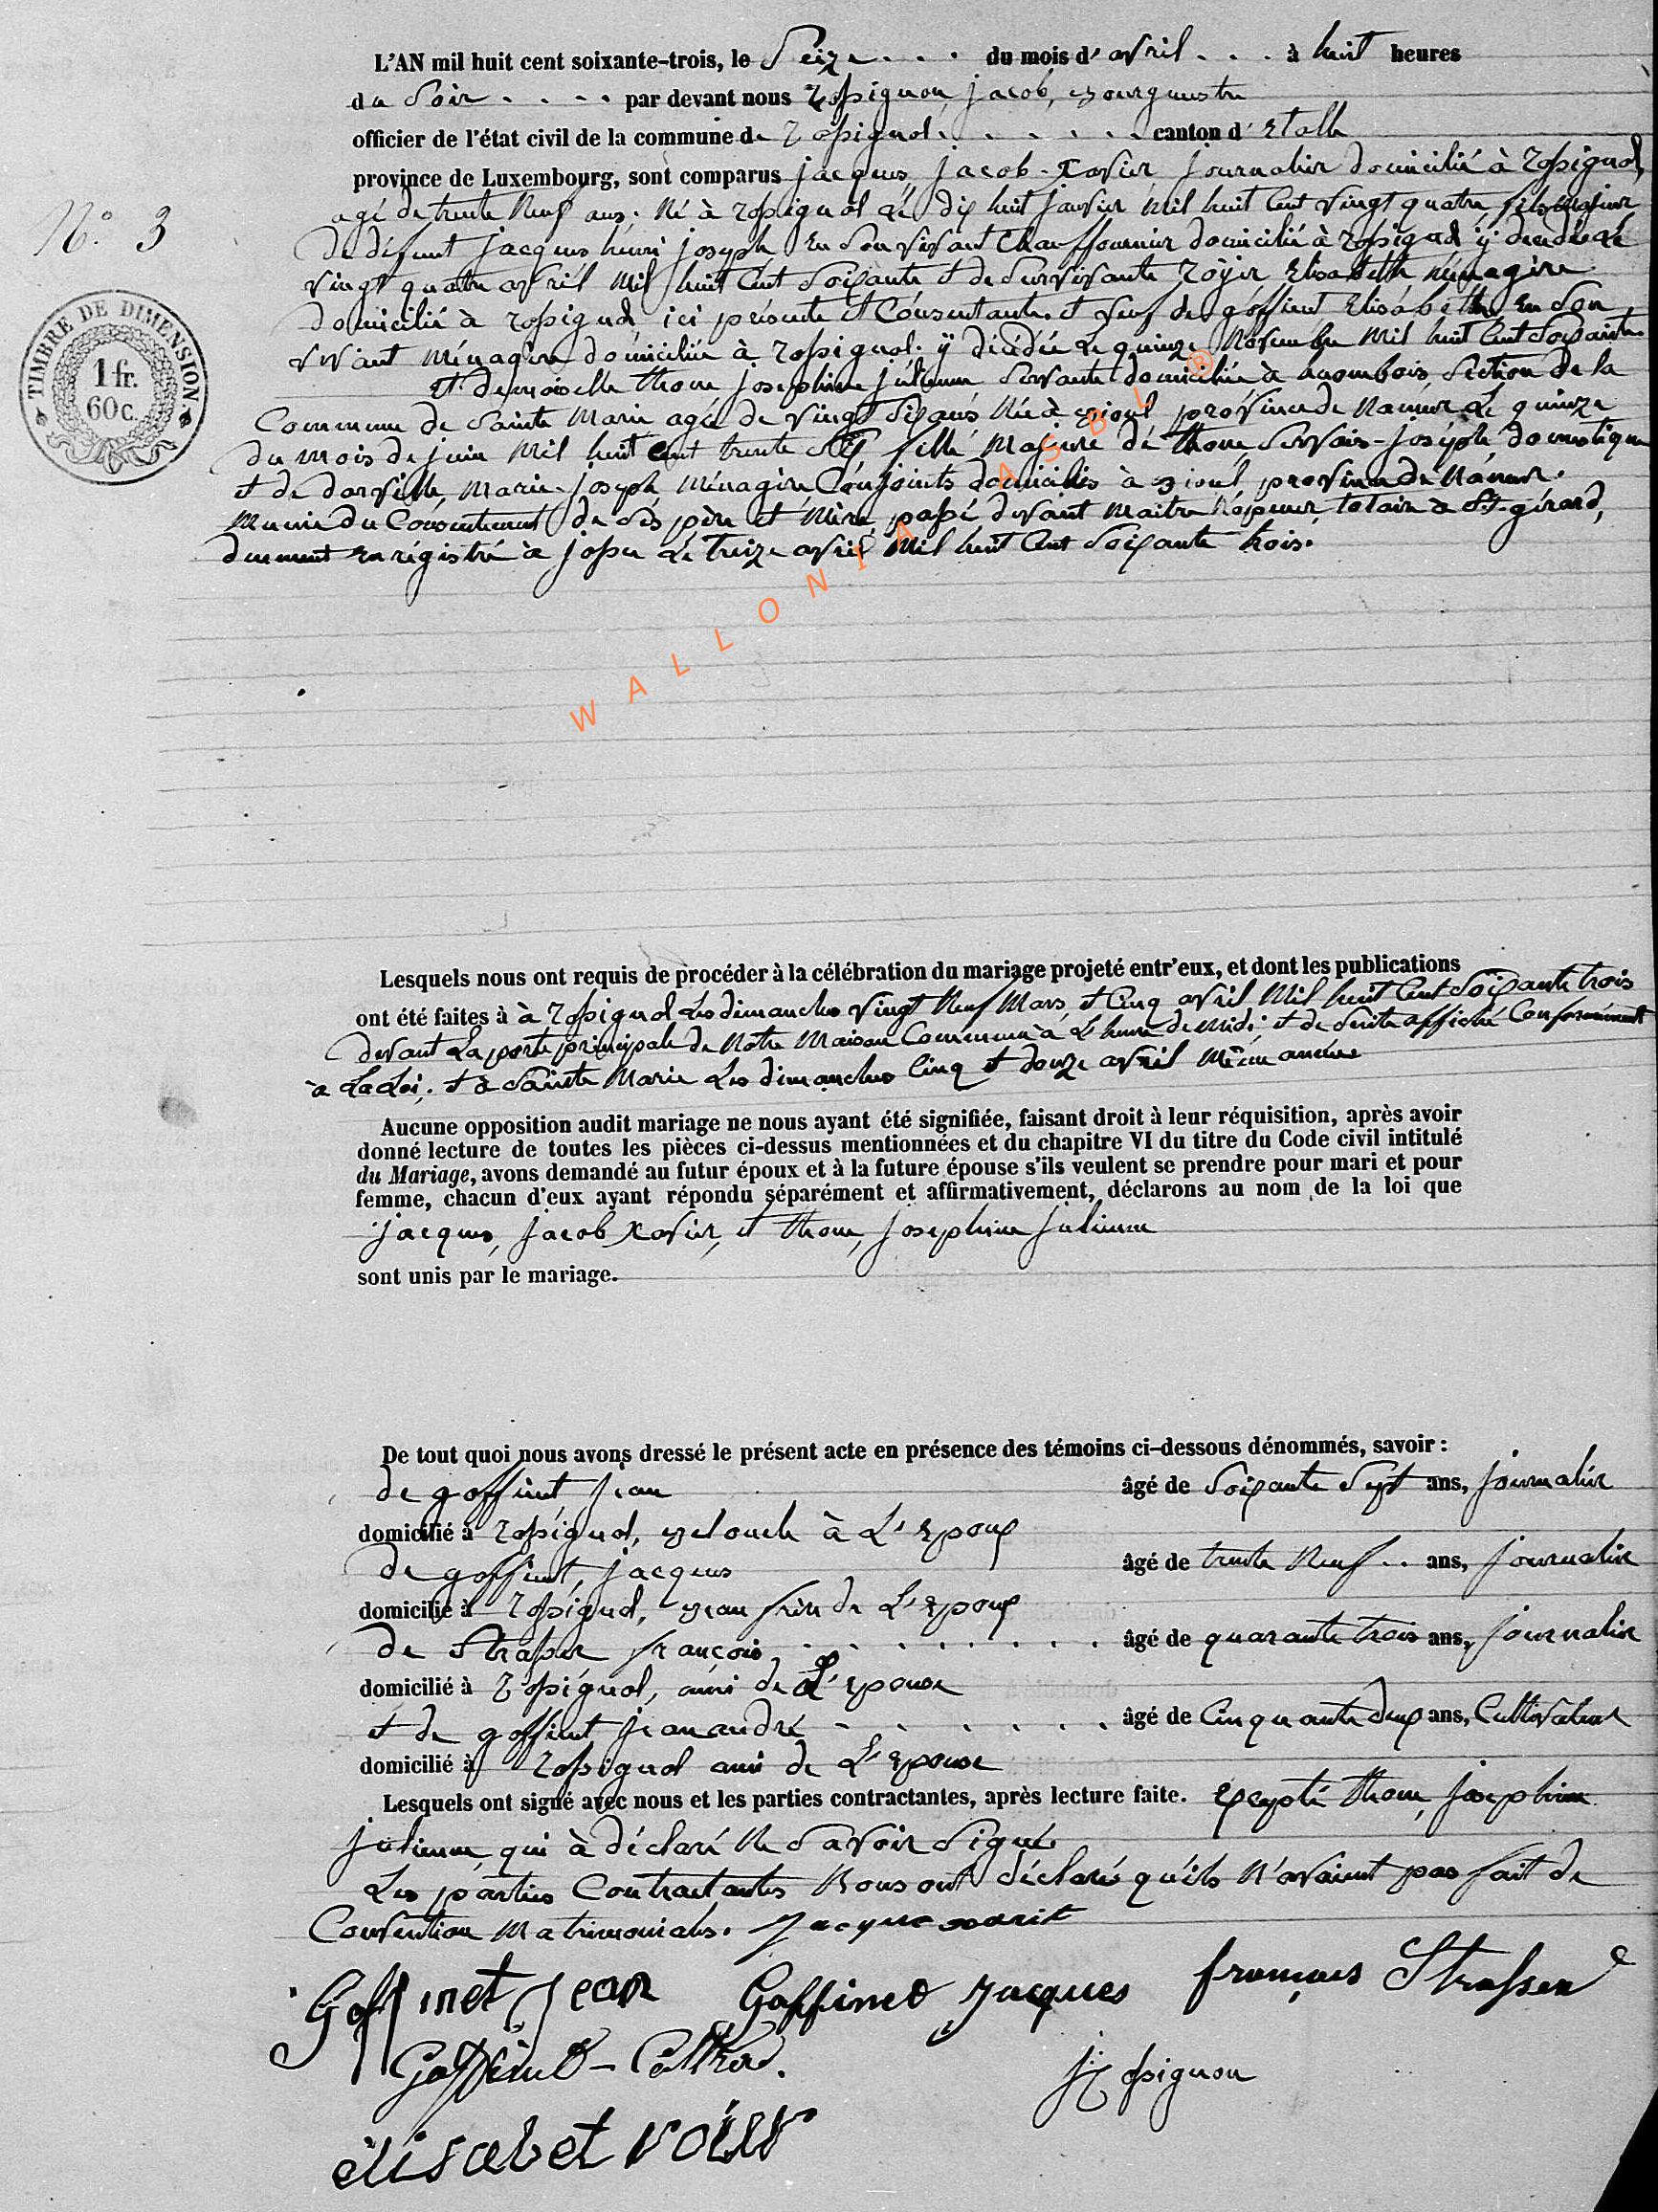 L'AN mil huit cent soixante-trois, le Seize . . . du mois d' avril . . . à huit heures
du Soir . . . . par devant nous Rossignon, jacob, Bourgmestre
officier de l'état civil de la commune de Rossignol . . . . . . canton d' Etalle
province de Luxembourg, sont comparus jacques, jacob-xavier journalier domicilié à Rossignol,
N.° 3
agé de trente Neuf ans. Né à Rossignol Le dix huit janvier Mil huit Cent vingt quatre fils majeur
de défunt jacques henri joseph En Son vivant Chauffournier domicilié à Rossignol ÿ decedé Le
vingt quatre avril Mil huit Cent Soixante et de Survivante Rõÿer Elisabeth Ménagère
domicilié à Rossignol, ici présente et Consentante. et veuf de goffinet Elisabeth En Son
vivant Ménagère domiciliée à Rossignol. ÿ décédée Le quinze Novembre Mil huit Cent Soixante.
TIMBRE DE DIMENSION
1 fr.
60 c.
et demoiselle thone josephine julienne Servante domiciliée à section de la
Commune de Sainte Marie agée de vingt Six ans Née à Bioul province de Namur Le quinze
du mois de juin Mil huit cent trente Six fille Majeure de thone Servais-joseph domestique
et de dorville, Marie-joseph Ménagère Conjoints domiciliés à Bioul province de Namur.
Munie du Consentement de Ses père et Mère, passé devant Maitre notaire à St gérard,
duement enrégistré à fosse Le treize avril Mil huit Cent Soixante trois.
WALLONIA ASBL ®
Lesquels nous ont requis de procéder à la célébration du mariage projeté entr'eux, et dont les publications
ont été faites à à Rossignol Les dimanches vingt Neuf Mars, et Cinq avril Mil huit Cent Soixante trois
devant La porte principale de Notre Maison Commune à L'heure de midi; et de Suite affiché Conformément
à La Loi. et à Sainte Marie Les dimanches Cinq et douze avril Même année
Aucune opposition audit mariage ne nous ayant été signifiée, faisant droit à leur réquisition, après avoir
donné lecture de toutes les pièces ci-dessus mentionnées et du chapitre VI du titre du Code civil intitulé
du Mariage, avons demandé au futur époux et à la future épouse s'ils veulent se prendre pour mari et pour
femme, chacun d'eux ayant répondu séparément et affirmativement, déclarons au nom de la loi que
jacques, jacob xavier, et thone, josephine julienne
sont unis par le mariage.
De tout quoi nous avons dressé le présent acte en présence des témoins ci-dessous dénommés, savoir :
de goffinet jean âgé de Soixante Sept ans, journalier
domicilié à Rossignol, à L'Epoux
de goffinet, jacques âgé de trente Neuf . . ans, journalier
domicilié à Rossignol, Beau frère de L'Epoux
de Strasser françois . . . . . . . âgé de quarante trois ans, journalier
domicilié à Rossignol, ami de L'Epouse
et de goffinet jean andré . . . . . . âgé de Cinquante deux ans, Cultivateur
domicilié à Rossignol ami de L'Epouse
Lesquels ont signé avec nous et les parties contractantes, après lecture faite. Excepté thone, josephine
julienne, qui à déclaré Ne Savoir Signer.
Les parties Contractantes Nous ont déclaré qu'ils N'avaient pas fait de
Convention Matrimoniales. Jacque xavier
Goffinet Jean Goffinet Jacques françois Strasser
Goffinet J Rossignon
élisabet